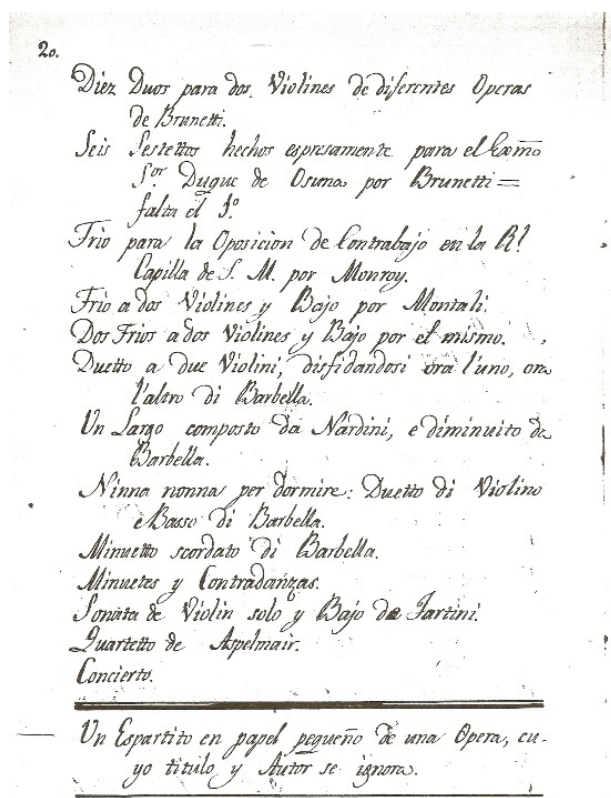 20.
Diez Duos para dos Violines de diferentes Operas
de Brunetti.
Seis Sestettos hechos espresamente para el Exmo
Sor. Duque de Osuna por Brunetti =
falta el 1º
Trio para la Oposicion de Contrabajo en la Rl
Capilla de S. M. por Monroy.
Trio a dos Violines y Bajo por Montali.
Dos Trios a dos Violines y Bajo por el mismo.
Duetto a due Violini, disfidandosi ora l'uno, ora
l'altro di Barbella.
Un Largo composto da Nardini, e diminuito da
Barbella.
Ninna nonna per dormire: Duetto di Violino
e Basso di Barbella.
Minuetto scordato di Barbella.
Minuetes y Contradanzas.
Sonata de Violin solo y Bajo de Tartini.
Quartetto de Aspelmair.
Concierto.
Un Espartito en papel pequeño de una Opera, cu-
yo titulo y Autor se ignora.